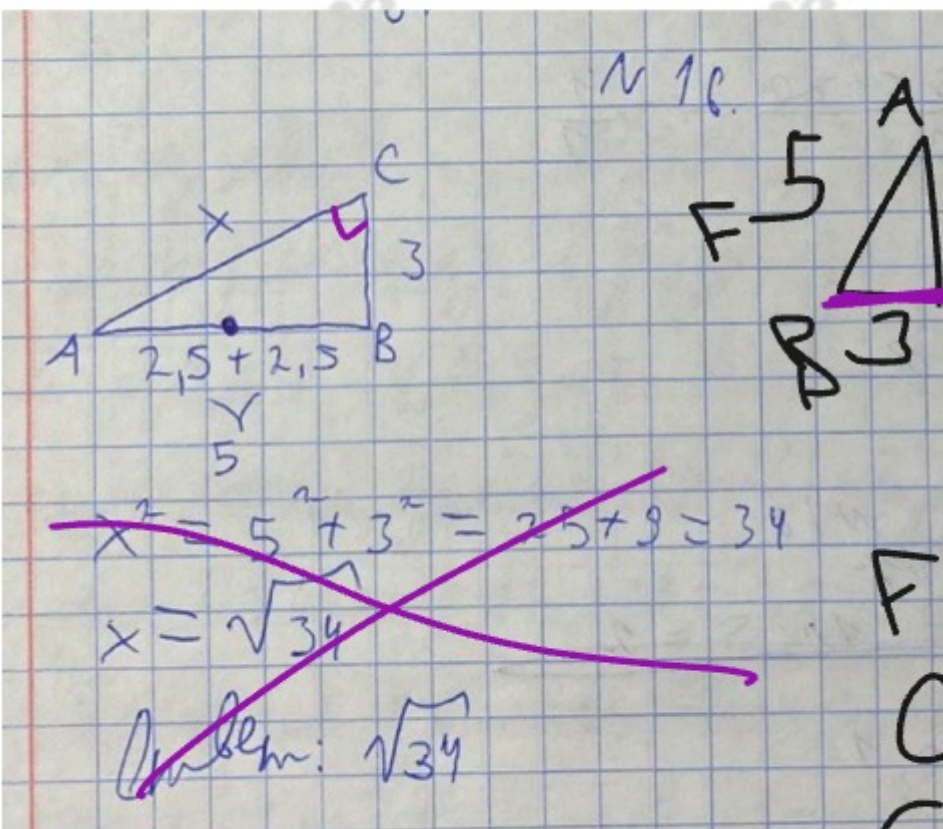 N 16.
C
x
3
A 2,5 + 2,5 B
5
x² = 5² + 3² = 25 + 9 = 34
x = √34
Ответ: √34
A
5
F
B 3
F